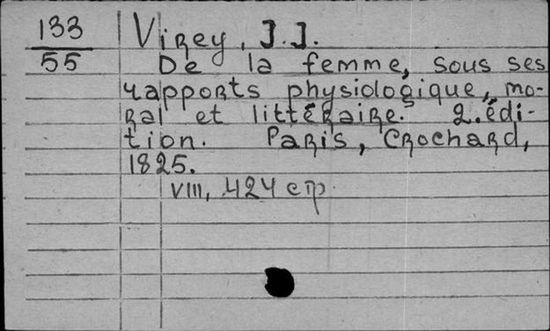 133
55
Virey, J.J.
De la femme, sous ses
rapports physiologique, mo-
ral et littéraire. 2.édi-
tion. Paris, Crochard,
1825.
VIII, 424 стр.